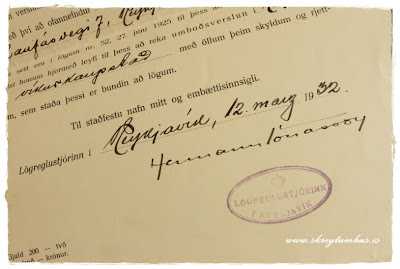 með því að ofannefndu
Laufásvegi 7. Reykj
lögum nr. 52, 27. júní 1925 til þess
honum hjermeð leyfi til þess að reka umboðsverslun í
með öllum þeim skyldum og rjett-
um, sem staða þessi er bundin að lögum.
Til staðfestu nafn mitt og embættisinnsigli.
Lögreglustjórinn í Reykjavík, 12. marz 1932.
Hermann Jónasson
LÖGREGLUSTJÓRINN
Í REYKJAVÍK
Gjald 200 — tvö
krónur.
www.skreytumhus.is